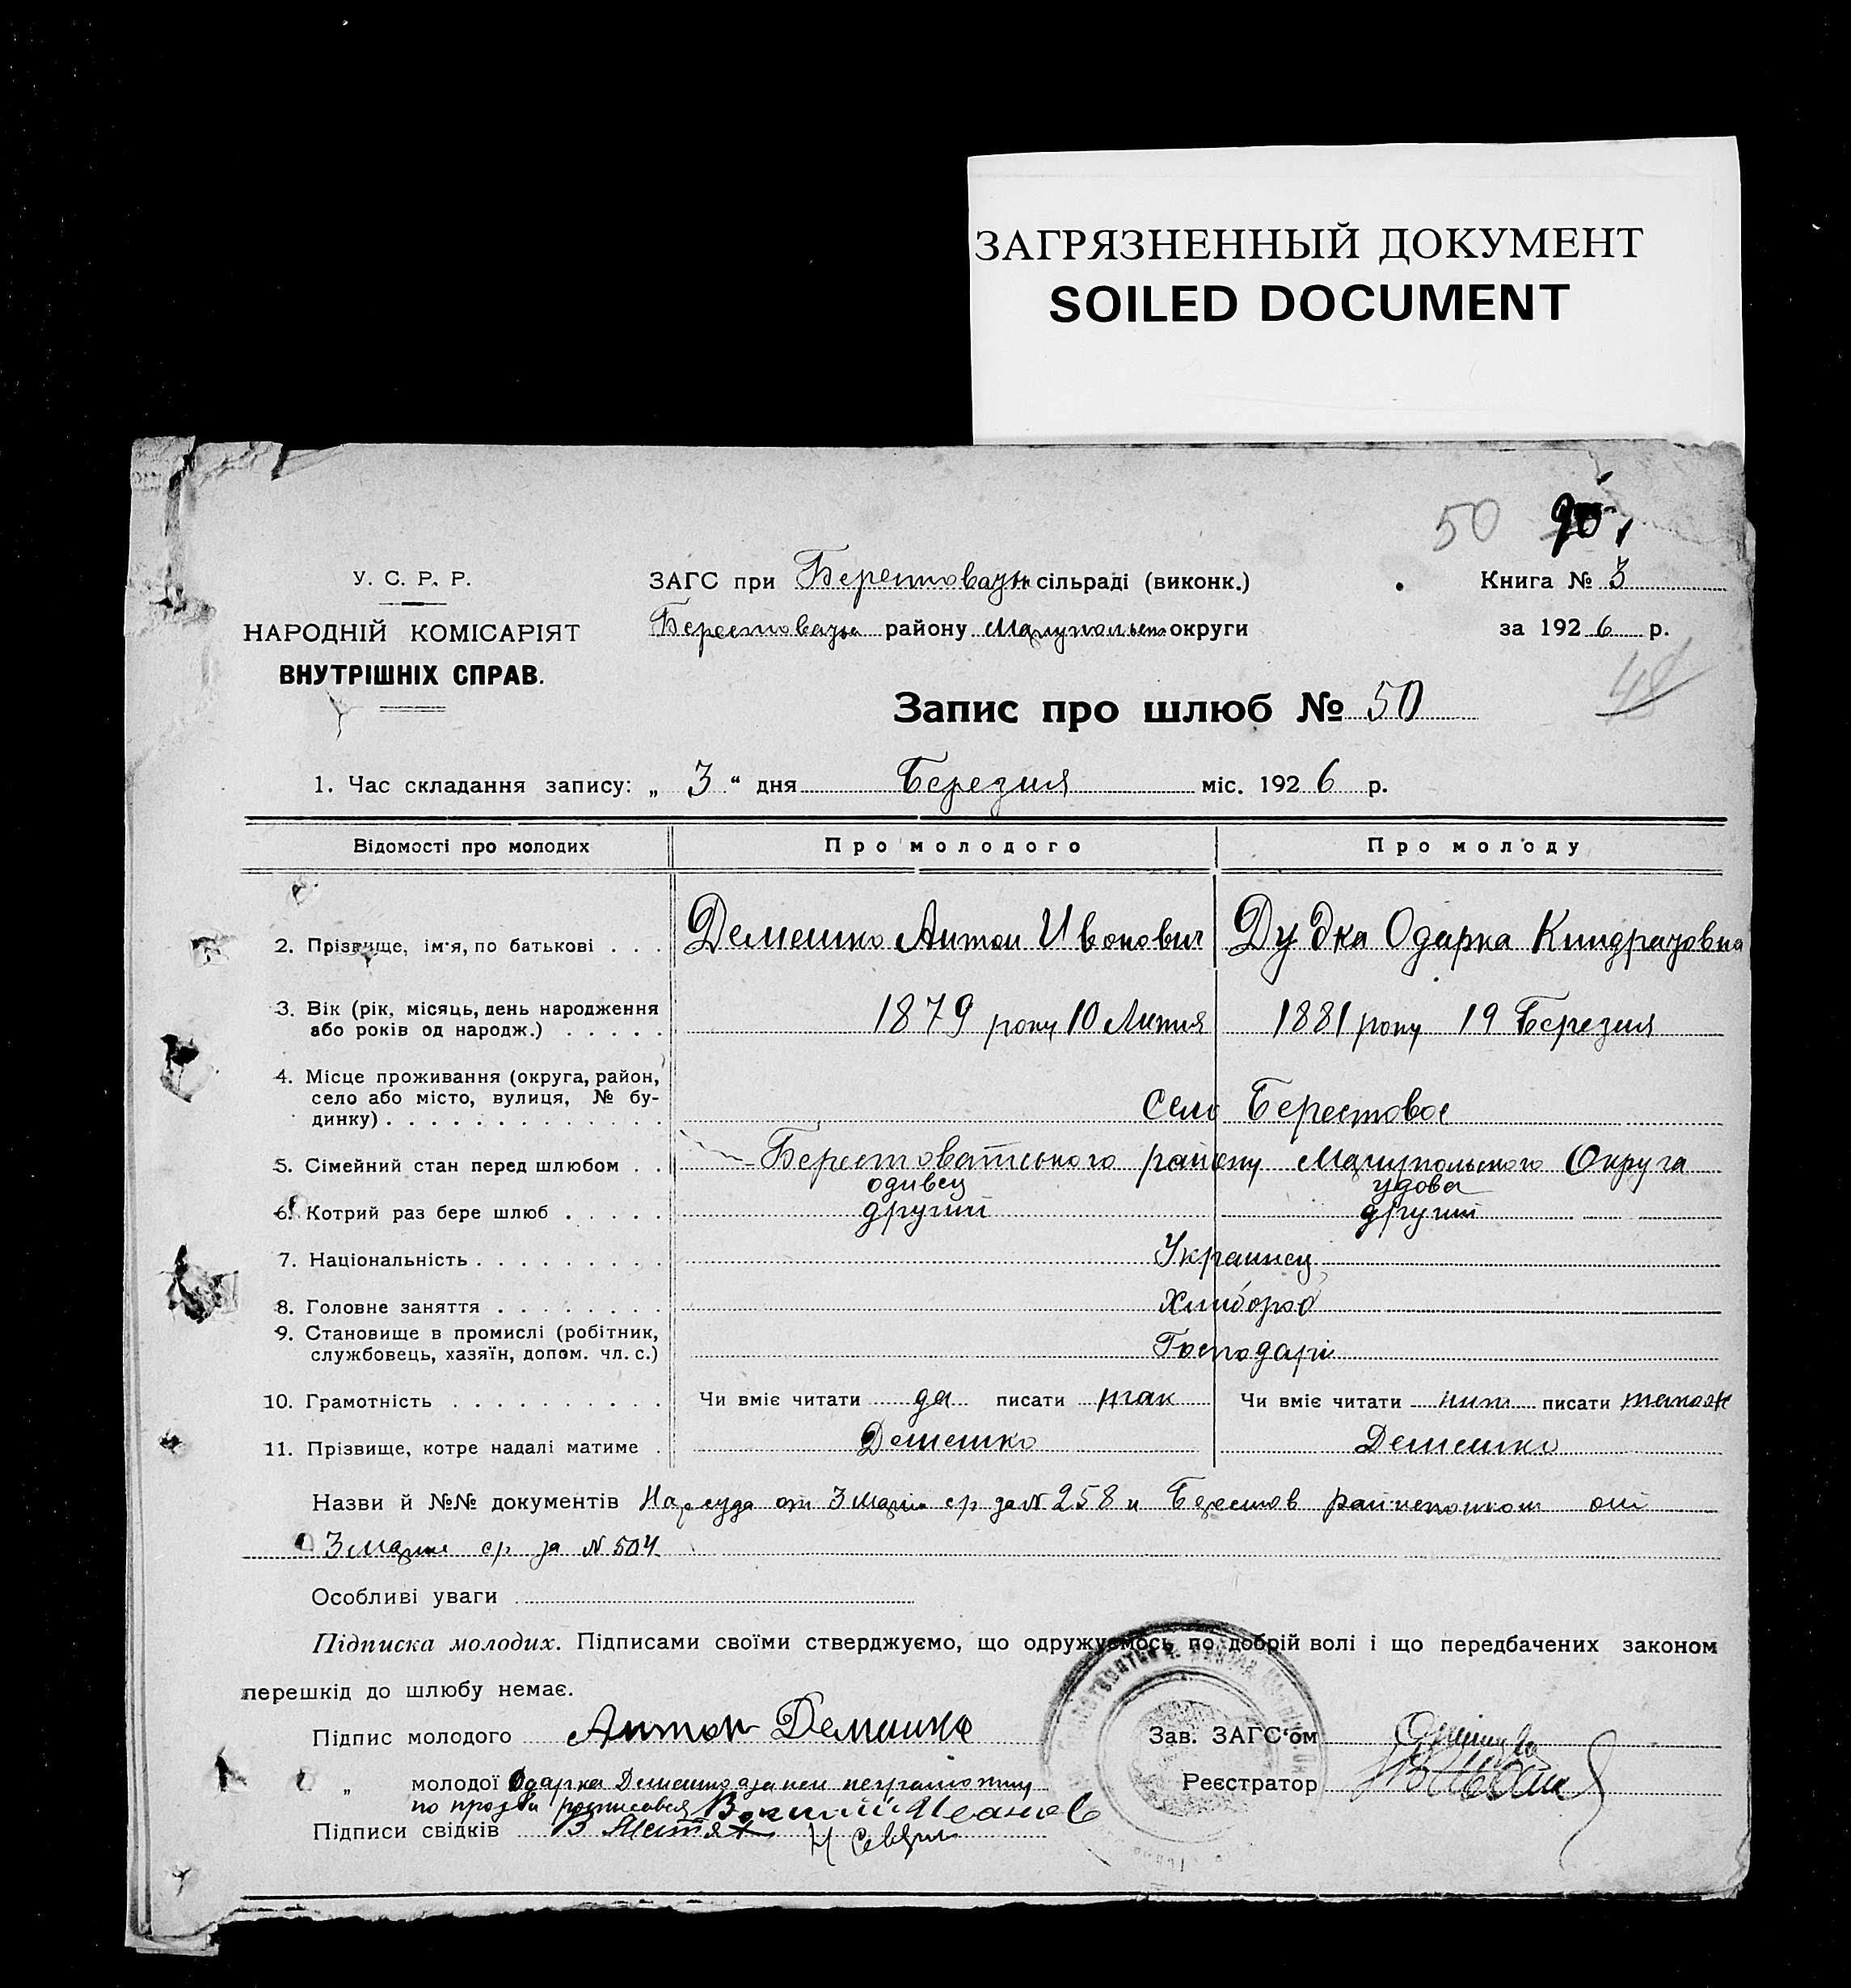 ЗАГРЯЗНЕННЫЙ ДОКУМЕНТ
SOILED DOCUMENT
50
У. С. Р. Р.
НАРОДНІЙ КОМІСАРІЯТ
ВНУТРІШНІХ СПРАВ.
ЗАГС при Берестовацьк сільраді (виконк.)
району округи
Книга № 3
за 1926 р.
48
Запис про шлюб № 50
1. Час складання запису: „ 3 “ дня Березня міс. 1926 р.
Відомості про молодих Про молодого Про молоду
2. Прізвище, ім'я, по батькові . . . Демешко Антон Иванович Дудка Одарка Киндратовна
3. Вік (рік, місяць, день народження
або років од народж.) . . . . . 1879 року 10 Липня 1881 року 19 Березня
4. Місце проживання (округа, район,
село або місто, вулиця, № бу-
динку) . . . . . . . . . . . . . Село Берестовое
5. Сімейний стан перед шлюбом . . Берестоватського району Мариупольського Округа
удова
6. Котрий раз бере шлюб . . . . . другий другий
7. Національність . . . . . . . . . Украинец
8. Головне заняття . . . . . . . . Хлибороб
9. Становище в промислі (робітник,
службовець, хазяїн, допом. чл. с.) Господарі
10. Грамотність . . . . . . . . . . Чи вміє читати да писати так Чи вміє читати нит писати також
11. Прізвище, котре надалі матиме . Демешко Демешко
Назви й №№ документів Нарсуда от 3 марта ср за № 258 и Берестов от
3 марта ср за № 504
Особливі уваги
Підписка молодих. Підписами своїми стверджуємо, що одружуємось по добрій волі і що передбачених законом
перешкід до шлюбу немає.
Підпис молодого Антон Демешко Зав. ЗАГС'ом
„ молодої Одарка Демешко Реєстратор
по
Підписи свідків